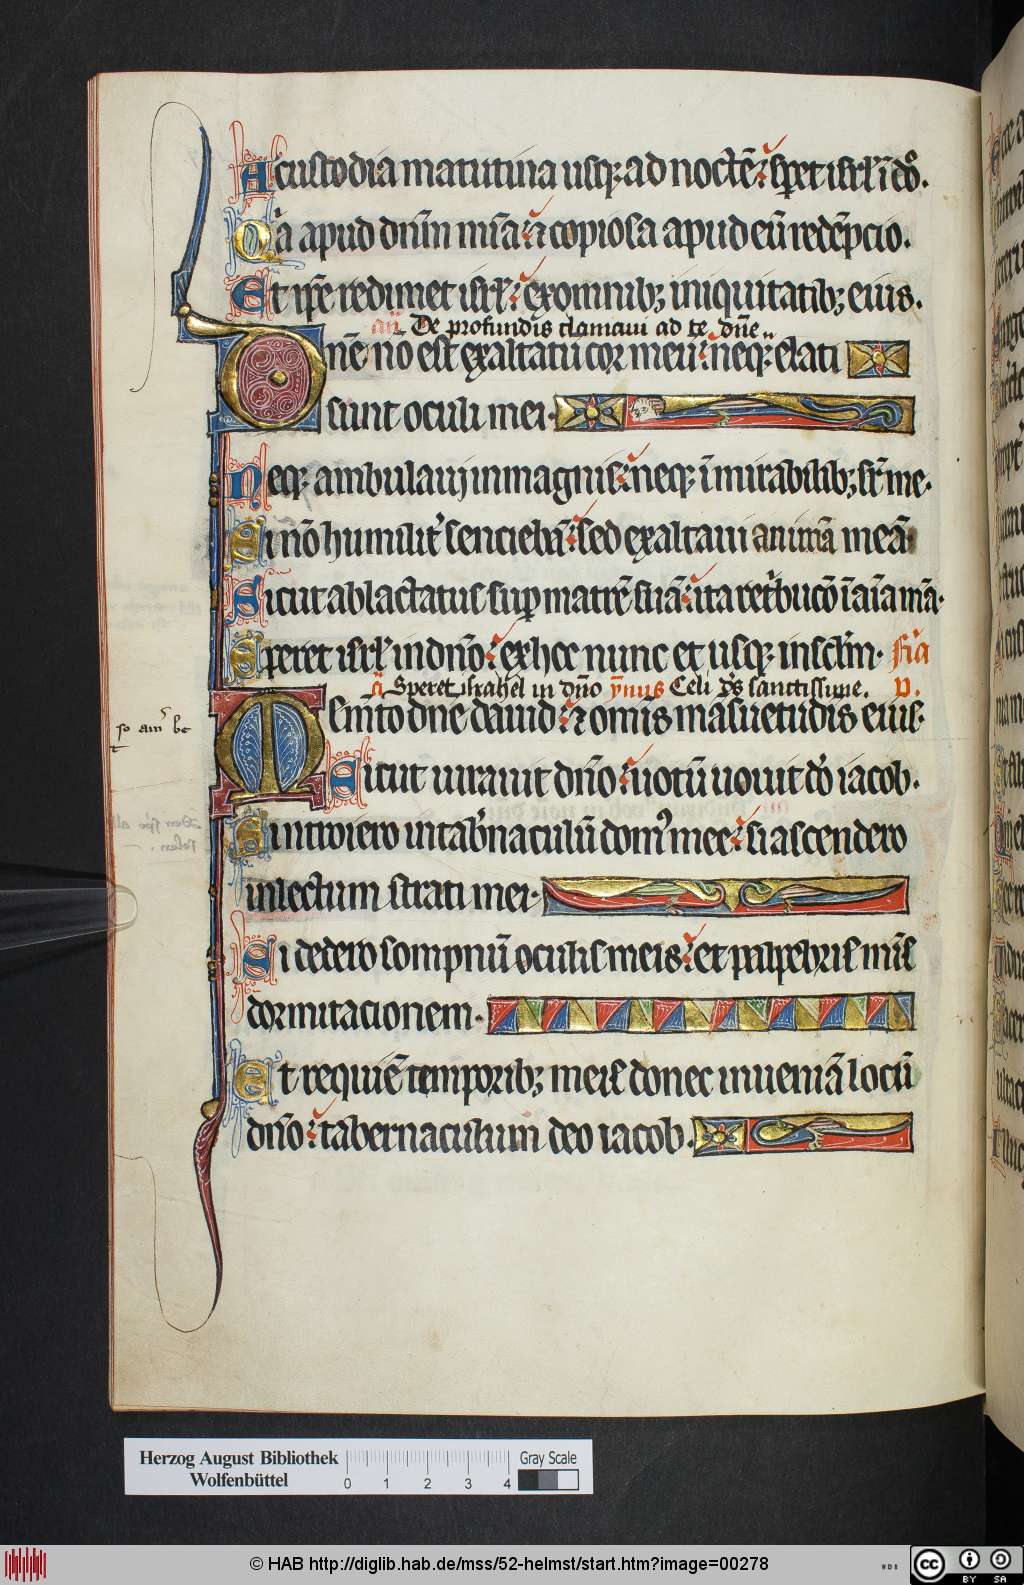 A custodia matutina usq; ad noctē: speret isrl' ī dō.
Qͥa apud dn̄m mīa: ⁊ copiosa apud eū redēpcio.
Et ip̄e redimet isrl': ex omnib; iniquitatib; eius.
an̄ De profundis clamaui ad te dn̄e..
Dn̄e nō est exaltatū cor meū: neq; elati
sunt oculi mei.
Neq; ambulauj in magnis: neq; ī mirabilib; sr̄ me.
Si nō humilit' senciebā: sed exaltaui animā meā
Sicut ablactatus sup matrē suā: ita ret'bucō ī aīa mā.
Speret isrl' in dn̄o: ex hoc nunc et usq; in sclm̄. fīa
a Speret israhel in dn̄o ymnus Celi ds̄ sanctissime. v.
Mem̄to dn̄e dauid: ⁊ om̄is māsuetudīs eius.
Sicut iurauit dn̄o: uotū uouit dō iacob.
so am̄ be
Si introiero in tab'naculū dom' mee: si ascendero
in lectum strati mei.
Si dedero sompnū oculis meis: et palpebris mīs
dormitacionem.
Et requiē temporib; meis donec inueniā locū
dn̄o: tabernaculum deo iacob.
Herzog August Bibliothek
Wolfenbüttel
0 1 2 3 4
Gray Scale
© HAB http://diglib.hab.de/mss/52-helmst/start.htm?image=00278
WDB
cc BY SA